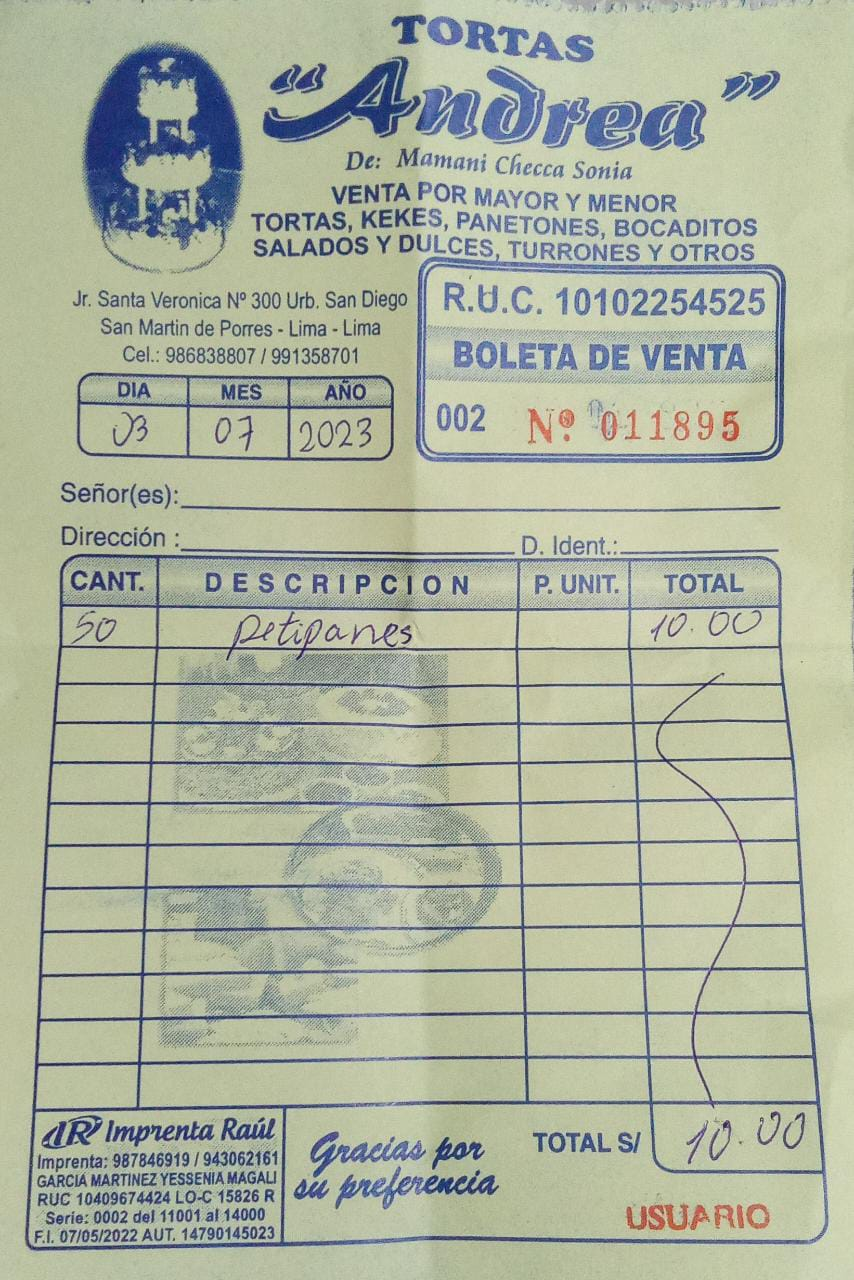 TORTAS
"Andrea"
De: Mamani Checca Sonia
VENTA POR MAYOR Y MENOR
TORTAS, KEKES, PANETONES, BOCADITOS
SALADOS Y DULCES, TURRONES Y OTROS
Jr. Santa Veronica Nº 300 Urb. San Diego
San Martin de Porres - Lima - Lima
Cel.: 986838807 / 991358701
R.U.C. 10102254525
BOLETA DE VENTA
002 Nº 011895
DIA MES AÑO
03 07 2023
Señor(es):
Dirección : D. Ident.:
CANT. DESCRIPCION P. UNIT. TOTAL
50 petipanes 10.00
TOTAL S/ 10.00
Imprenta Raúl
Imprenta: 987846919 / 943062161
GARCIA MARTINEZ YESSENIA MAGALI
RUC 10409674424 LO-C 15826 R
Serie: 0002 del 11001 al 14000
F.I. 07/05/2022 AUT. 14790145023
Gracias por
su preferencia
USUARIO